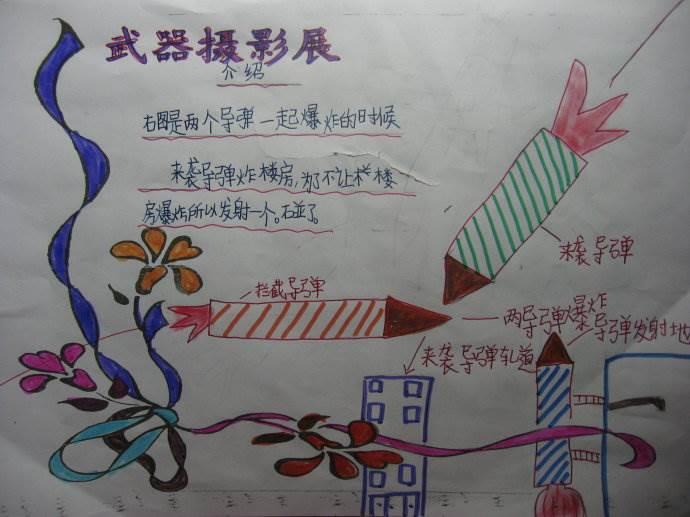 武器摄影展
介绍
右图是两个导弹一起爆炸的时候
来袭导弹炸楼房,为了不让栏楼
房爆炸所以发射一个。
来袭导弹
拦截导弹
两导弹爆炸
导弹发射地
来袭导弹轨道